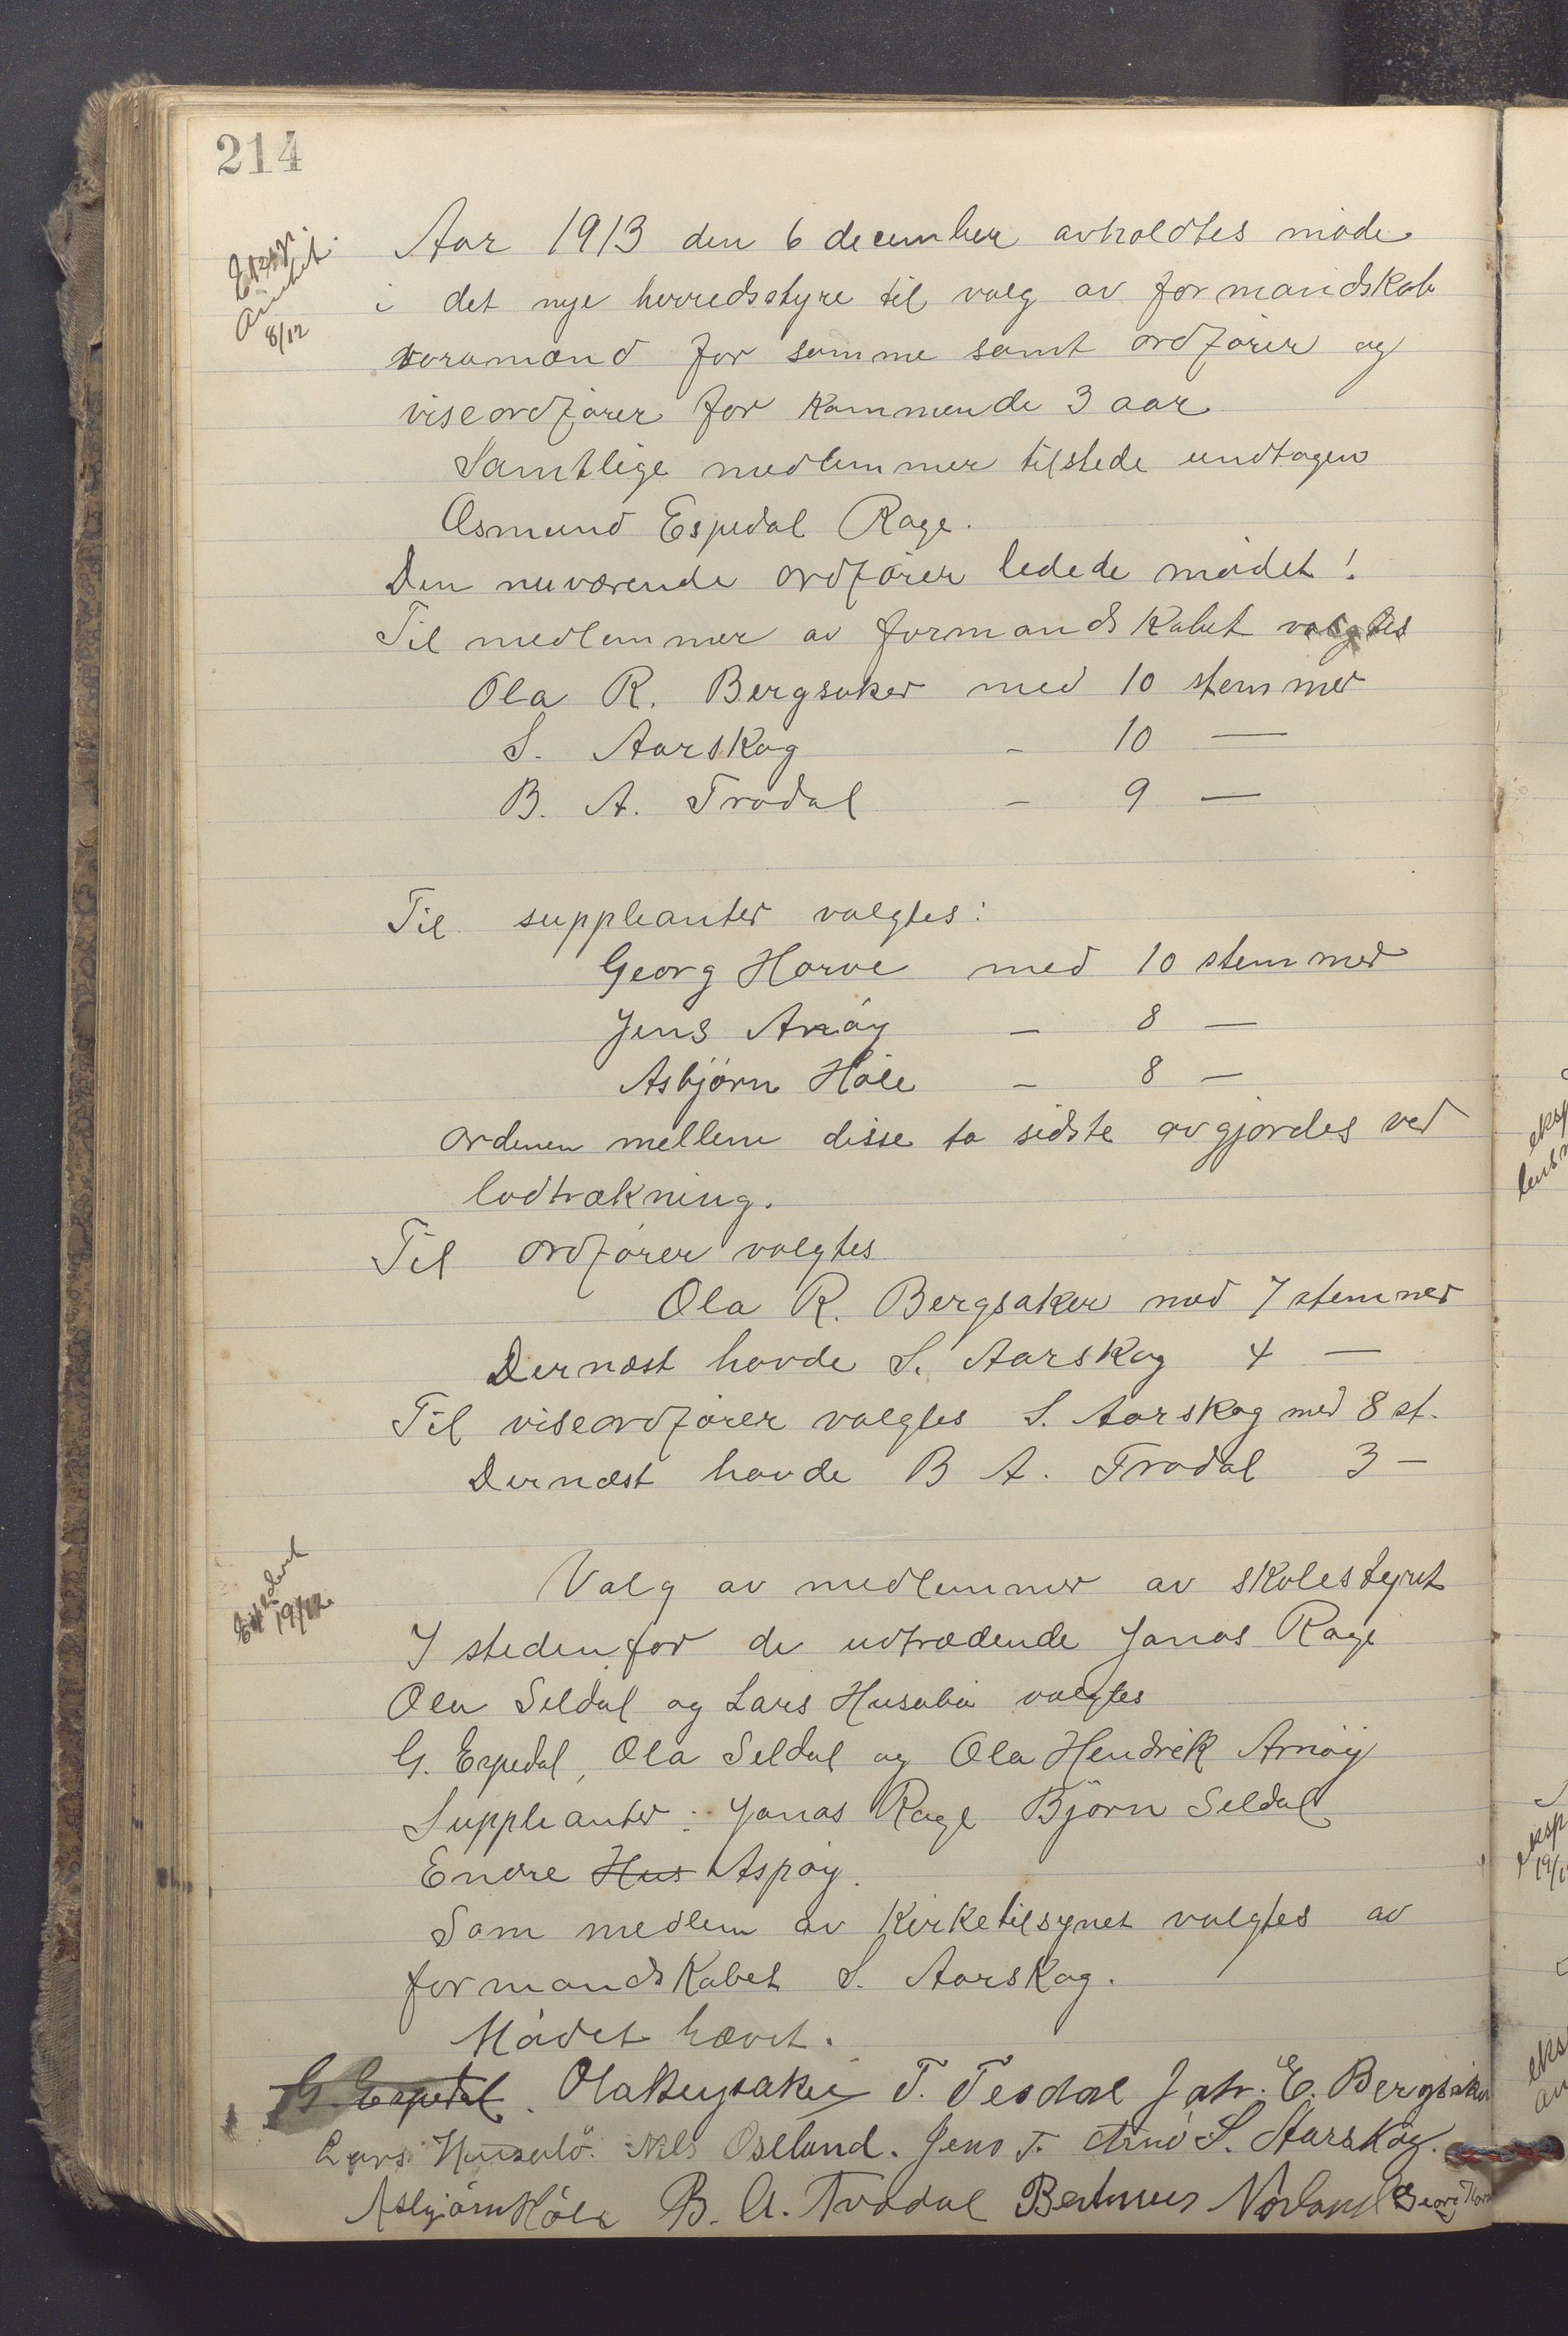 214
Ekspr.
Amtet.
8/12
Aar 1913 den 6 december avholdtes møde
i det nye herredsstyre til valg av formandskab
varamænd for samme samt ordfører og
viseordfører for kommende 3 aar
Samtlige medlemmer tilstede undtagen
Osmund Espedal Rage.
Den nuværende ordfører ledede mødet!
Til medlemmer av formandskabet valgtes
Ola R. Bergsaker med 10 stemmer
S. Aarskog - 10 —
B. A. Trodal - 9 —
Til suppleanter valgtes:
Georg Horve med 10 stemmer
Jens Arnøy - 8 —
Asbjørn Høle - 8 —
ordenen mellem disse to sidste avgjordes ved
lodtrækning.
Til ordfører valgtes
Ola R. Bergsaker med 7 stemmer
Dernæst havde S. Aarskog 4 —
Til viseordfører valgtes S. Aarskog med 8 st.
Dernæst havde B A. Trodal 3 —
19/12
Valg av medlemmer av skolestyret
I stedenfor de udtrædende Jonas Rage
Ola Seldal og Lars Husabø valgtes
G. Espedal, Ola Seldal og Ola Hendrik Arnøy
Suppleanter: Jonas Rage Bjørn Seldal
Endre Hus Aspøy.
Som medlem av Kirketilsynet valgtes av
formandskabet S. Aarskog.
Mødet hævet.
G. Espedal. Ola Bergsaker T. Tesdal Joh. E. Bergsaker
Lars Husabö. Nils Osland. Jens T. Arnö S. Aarskog.
Asbjørn Høle B. A. Trodal Berthines Norland Georg Horve